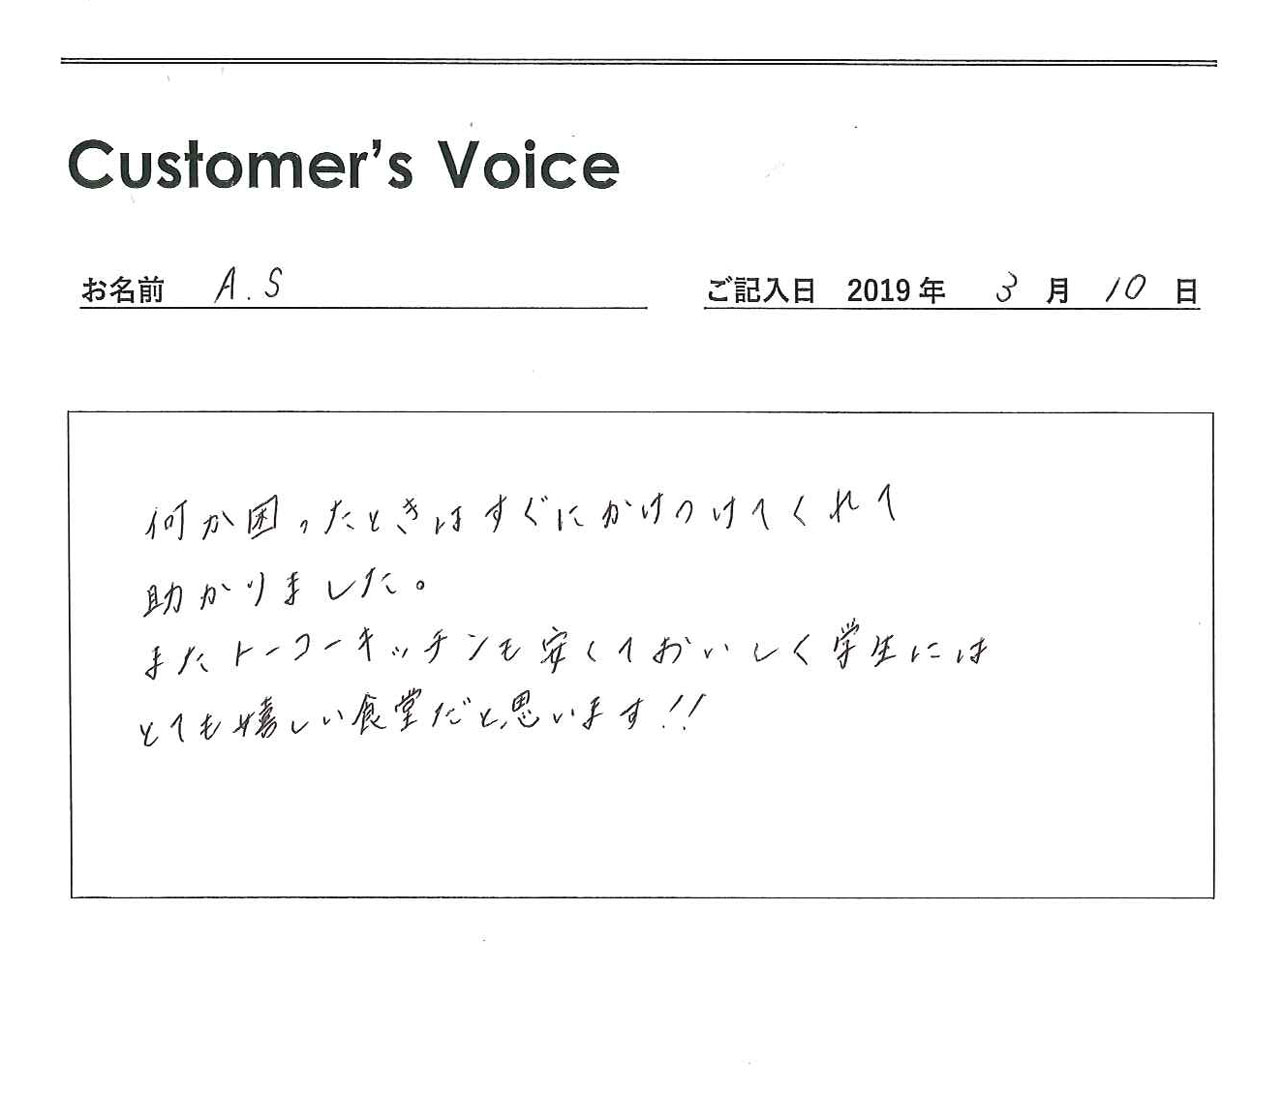 Customer's Voice
お名前 A.S
ご記入日 2019年 3月 10日
何か困ったときはすぐにかけつけてくれて
助かりました。
またトーコーキッチンも安くておいしく学生には
とても嬉しい食堂だと思います!!